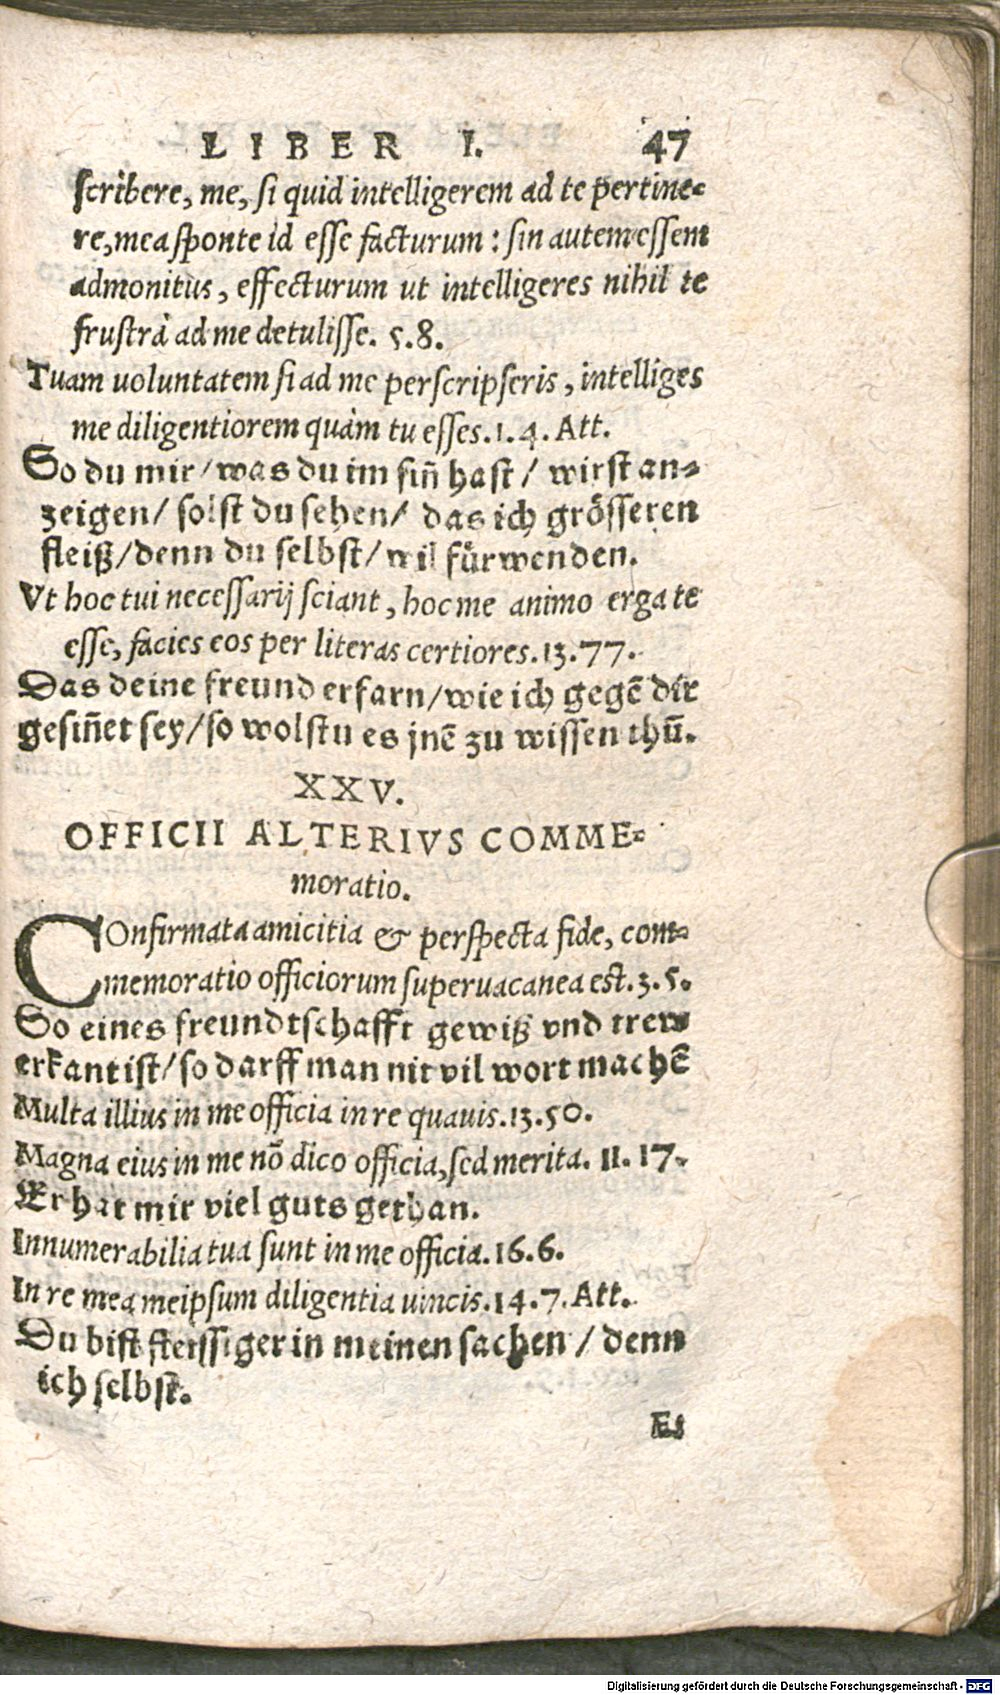 LIBER I. 47
scribere, me, si quid intelligerem ad te pertine-
re, mea sponte id esse facturum: sin autem essem
admonitus, effecturum ut intelligeres nihil te
frustrà ad me detulisse. 5.8.
Tuam uoluntatem si ad me perscripseris, intelliges
me diligentiorem quàm tu esses. 1.4. Att.
So du mir/was du im siñ hast/ wirst an-
zeigen/ solst du sehen/ das ich grösseren
fleiß/denn du selbst/wil fürwenden.
Vt hoc tui necessarij sciant, hoc me animo erga te
esse, facies eos per literas certiores. 13.77.
Das deine freund erfarn/wie ich gegē dir
gesiñet sey/so wolstu es jnē zu wissen thũ.
XXV.
OFFICII ALTERIVS COMME-
moratio.
COnfirmata amicitia & perspecta fide, com-
memoratio officiorum superuacanea est. 3.5.
So eines freundtschafft gewiß vnd trew
erkant ist/so darff man nit vil wort machē
Multa illius in me officia in re quauis. 13.50.
Magna eius in me nō dico officia, sed merita. 11.17.
Er hat mir viel guts gethan.
Innumerabilia tua sunt in me officia. 16.6.
In re mea meipsum diligentia uincis. 14.7. Att.
Du bist fleissiger in meinen sachen/ denn
ich selbst.
Ei
Digitalisierung gefördert durch die Deutsche Forschungsgemeinschaft - DFG